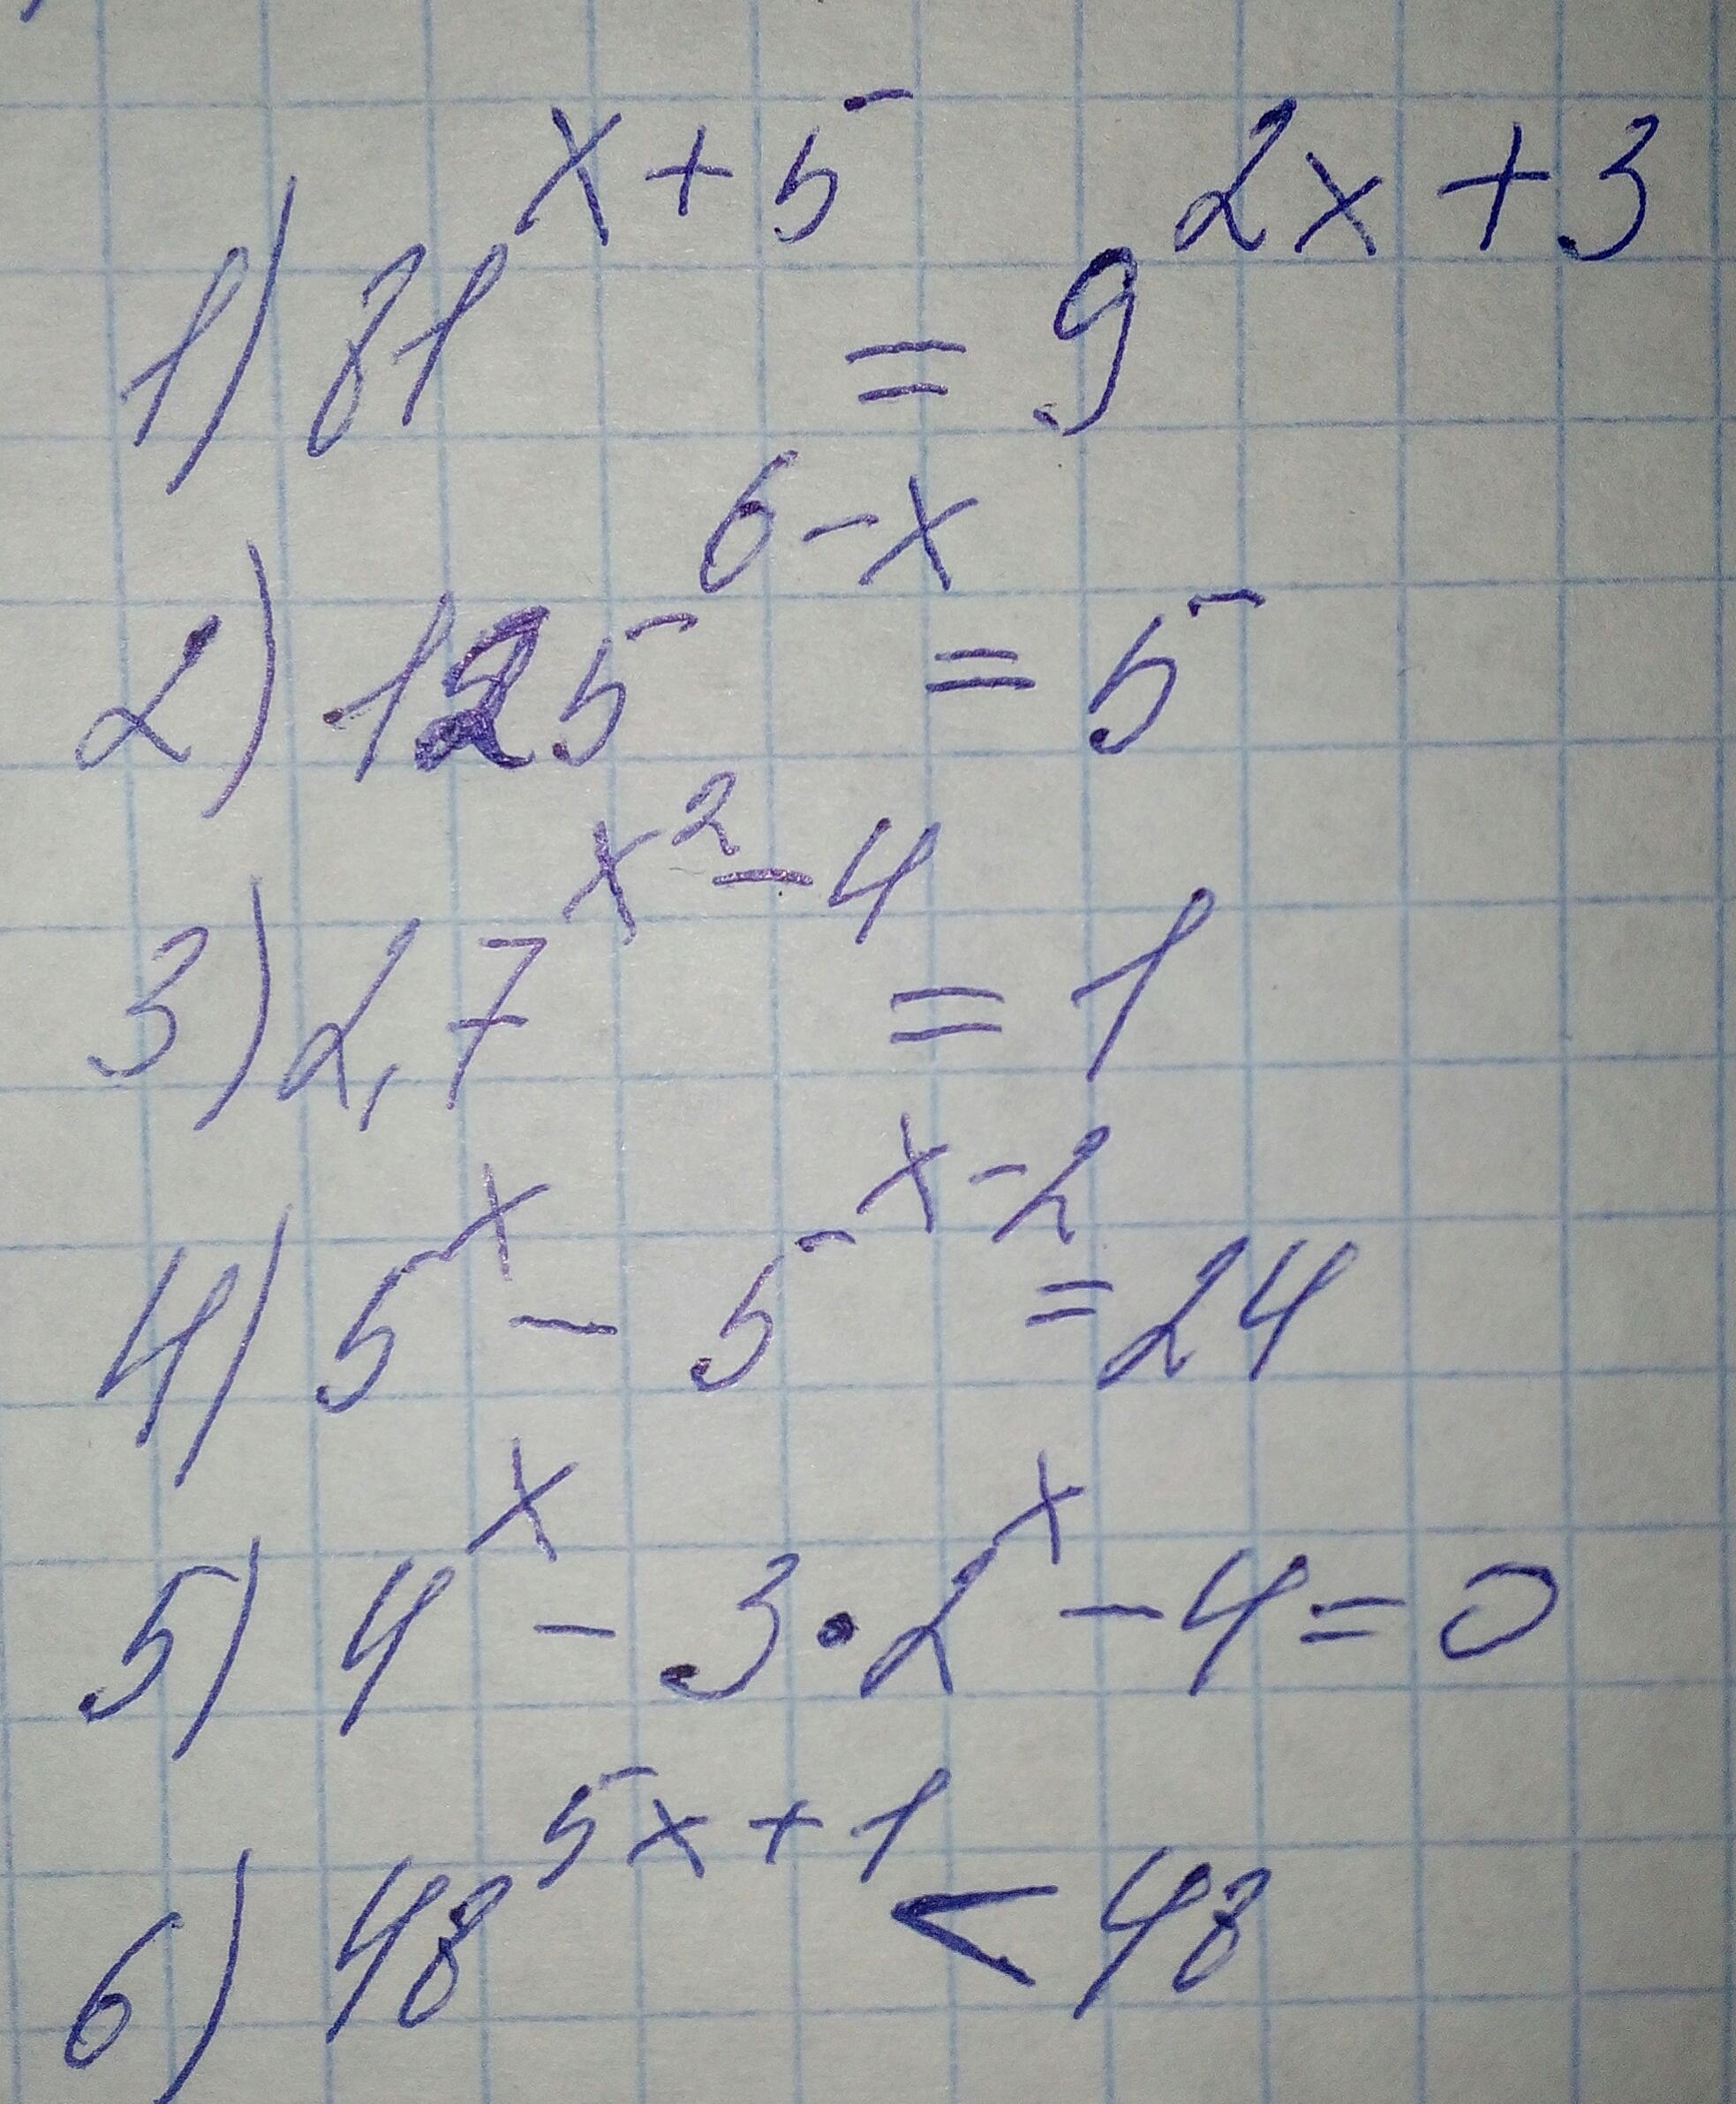 1) 81^(x+5) = 9^(2x+3)
2) 125^(6-x) = 5
3) 2,7^(x²-4) = 1
4) 5^x - 5^(x-2) = 24
5) 4^x - 3·2^x - 4 = 0
6) 48^(5x+1) < 48